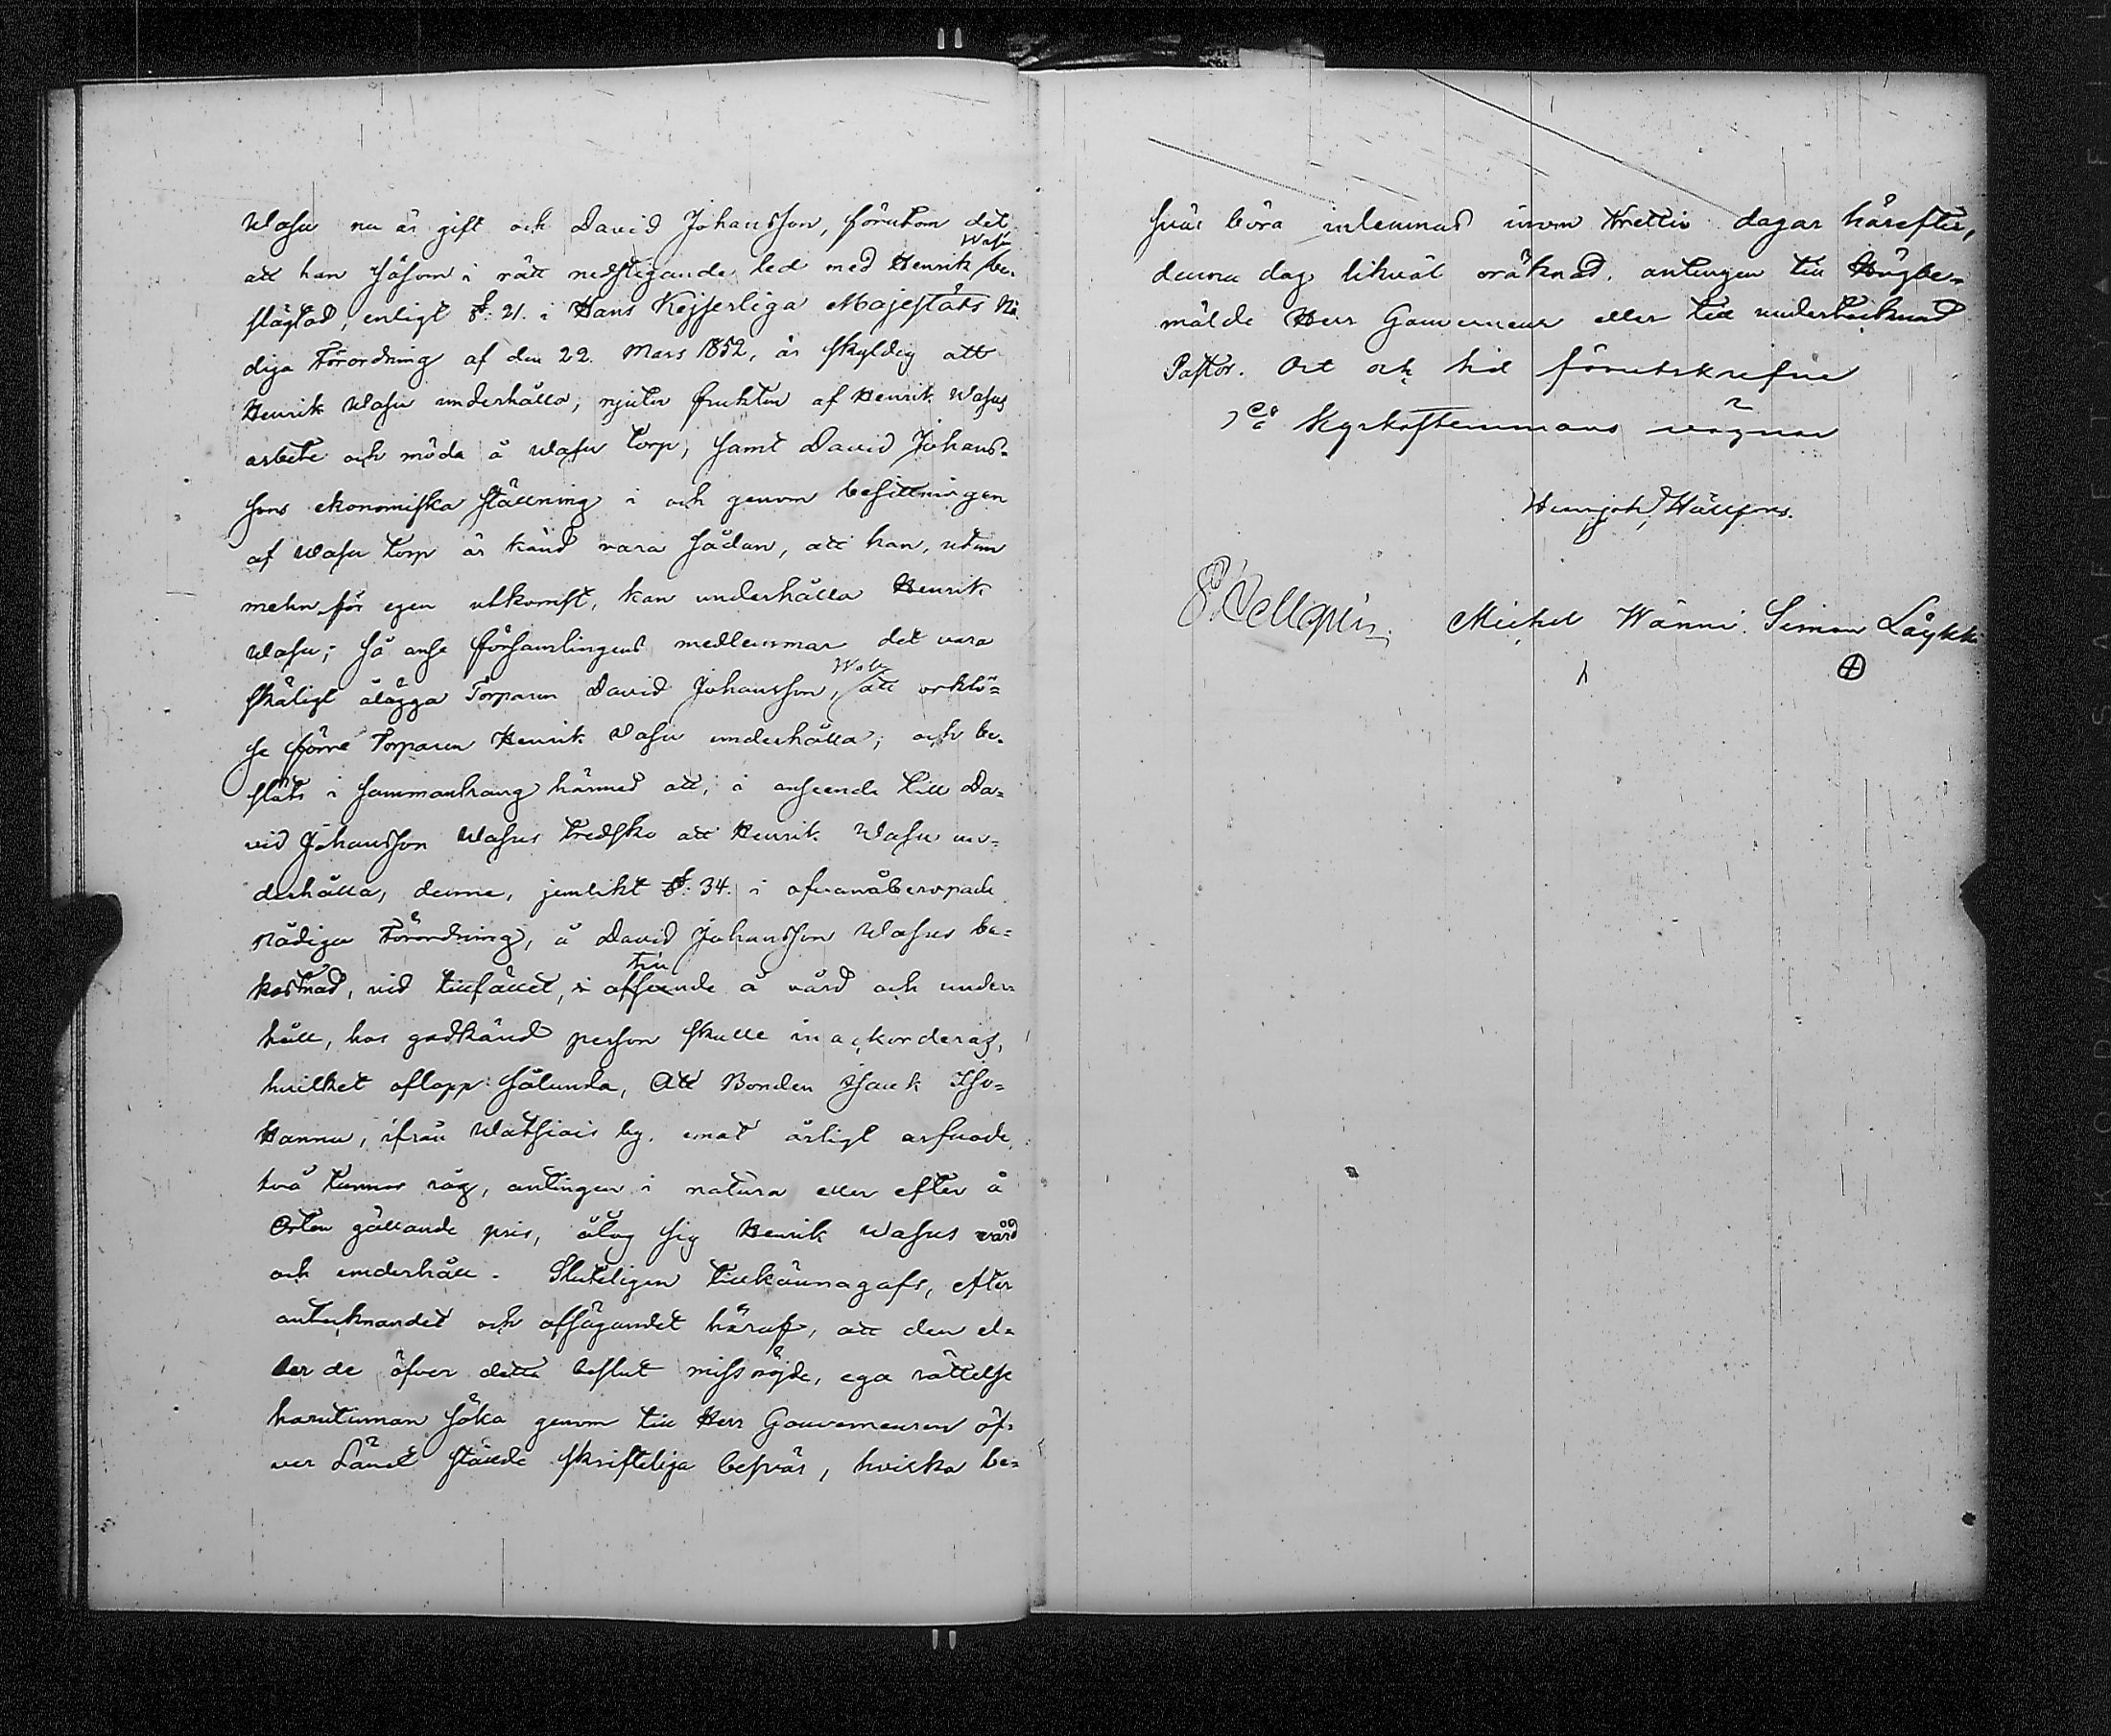 Wasu nu är gift och David Johansson, förutom det
Wasu
att han såsom i rätt nedstigande led med Henrik be-
slägtad, enligt §: 21. i Hans Kejserliga Majestäts Nå-
diga Förordning af den 22. Mars 1852, är skyldig att
Henrik Wasu underhålla, njuter frukten af Henrik Wasus
arbete och möda å Wasu torp, samt David Johans-
sons ekonomiska ställning i och genom besittningen
af Wasu torp är känd vara sådan, att han, utan
mehn för egen utkomst, kan underhålla Henrik
Wasu; så anse församlingens medlemmar det vara
Wasu
skäligt ålägga Torparen David Johansson, att orklö-
se förre Torparen Henrik Wasu underhålla; och be-
slöts i sammanhang härmed att, i anseende till Da-
vid Johansson Wasus tredsko att Henrik Wasu un-
derhålla, denne, jemlikt §: 34. i ofvanåberopade
Nådiga Förordning, å David Johansson Wasus be-
till
kostnad, vid tillfället, i afseende å vård och under-
håll, hos godkänd person skulle inackorderas,
hvilket aflopp sålunda, Att Bonden Isaak Iso-
Hannu, ifrån Watsiais by, emot årligt arfvode
två tunnor råg, antingen i natura eller efter å
Orten gällande pris, åtog sig Henrik Wasus vård
och underhåll. Slutligen tillkännagafs, efter
antecknandet och afsägandet häraf, att den el-
ler de öfver detta beslut missnöjde, ega rättelse
harutinnan söka genom till Herr Gouverneuren öf-
ver Länet stälde skriftliga besvär, hvilka be-
svär böra inlemnas inom trettio dagar härefter,
denna dag likväl oräknad, antingen till Högbe-
mälde Herr Gouverneur eller till undertecknad
Pastor. Ort och tid förutskrefne
Kyrkostemmans vägnar
Michel Wänni. Simon Läykki